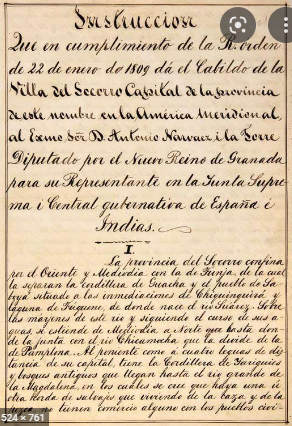 Instruccion
Que en cumplimiento de la R. orden
de 22 de enero de 1809 dá el Cabildo de la
Villa del Socorro Capital de la provincia
de este nombre en la América Meridional
al Exmo Sõr D. Antonio Narvaez i la Torre
Diputado por el Nuevo Reino de Granada
para su Representante en la Junta Supre-
ma i Central gubernativa de España é
Indias.
I.
La provincia del Socorro confina
por el Oriente y Mediodia con la de Tunja, de la cual
la separan la cordillera de Guacha y el pueblo de Sa-
boyá situado a las inmediaciones de Chiquinquirá y
laguna de Fúquene, de donde nace el rio Suárez. Sobre
las márgenes de este rio y siguiendo el curso de sus a-
guas, si estiende de Mediodia a Norte que hasta don-
de la junta con el rio Chicamocha que la divide de la
de Pamplona. Al poniente como á cuatro leguas de dis-
tancia de su capital, tiene la Cordillera de Yariguies
y bosques antiguos que llegan hasta el rio grande de
la Magdalena, en los cuales se cree que haya una ú
otra horda de salvajes que viviendo de la caza y de la
pesca no tienen comercio alguno con los pueblos civi-
524 × 761